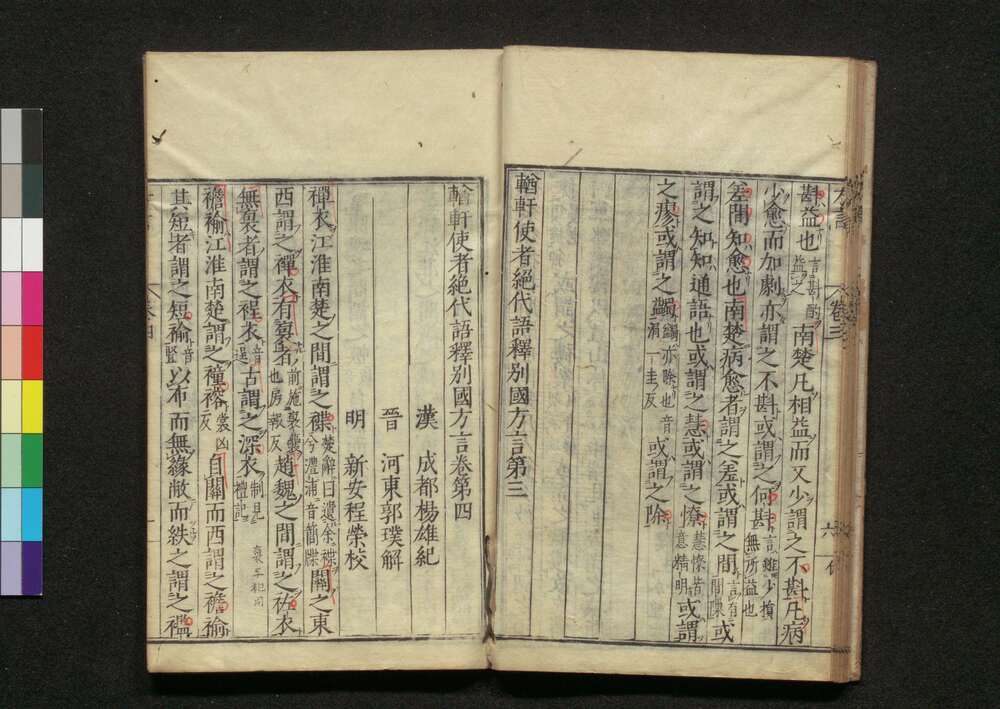 斟益也言斟酌益之南楚凡相益而又少謂之不斟凡病
少愈而加劇亦謂之不斟或謂之何斟言雖少損無所益也
差間知愈也南楚病愈者謂之差或謂之間言有間隙或
謂之知知通語也或謂之慧或謂之憭慧憭皆意精明或謂
之瘳或謂之蠲蠲亦除也音涓一圭反或謂之除
輶軒使者絕代語釋別國方言第三
輶軒使者絕代語釋別國方言卷第四
漢 成都楊雄紀
晉 河東郭璞解
明 新安程榮校
襌衣江淮南楚之間謂之褋楚辭曰遺余褋兮澧浦音簡牒關之東
西謂之襌衣有袌者前施袌囊也房報反趙魏之間謂之袏衣
無袌者謂之裎衣音逞古謂之深衣制見禮記
襜褕江淮南楚謂之䙱褣裳凶反自關而西謂之襜褕
其短者謂之短褕音豎以布而無緣敝而紩之謂之襤
方言
卷三
六
卷四